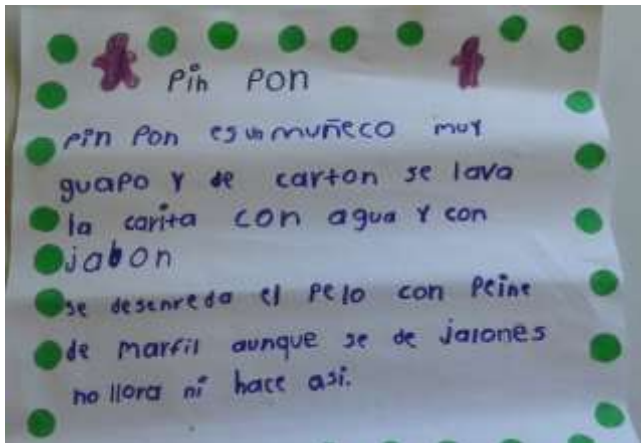 Pin Pon
Pin Pon es un muñeco muy
guapo y de carton se lava
la carita con agua y con
jabon
se desenreda el pelo con peine
de marfil aunque se de jalones
no llora ni hace asi.